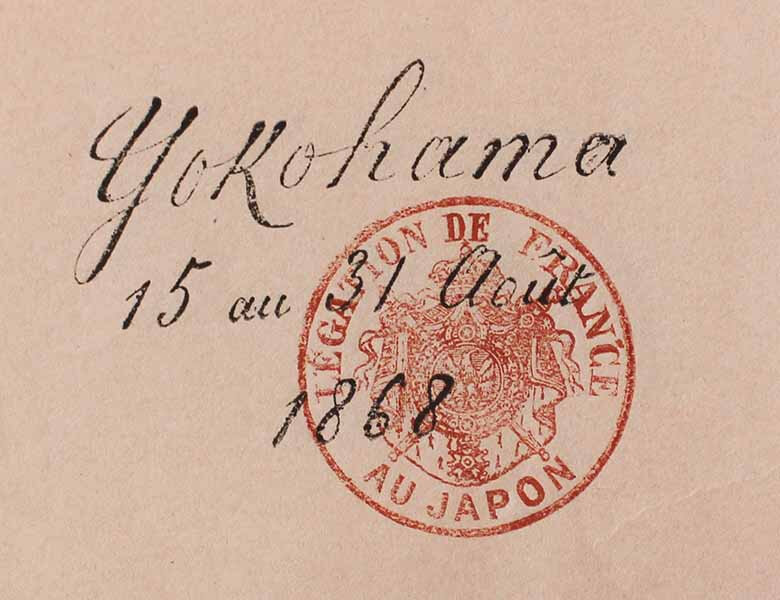 Yokohama
15 au 31 Août
1868
LÉGATION DE FRANCE
AU JAPON